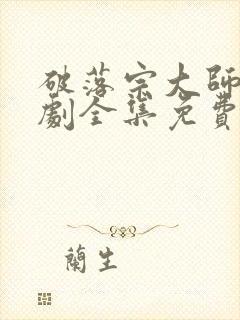 破落宗大師
劇全集免費
蘭生